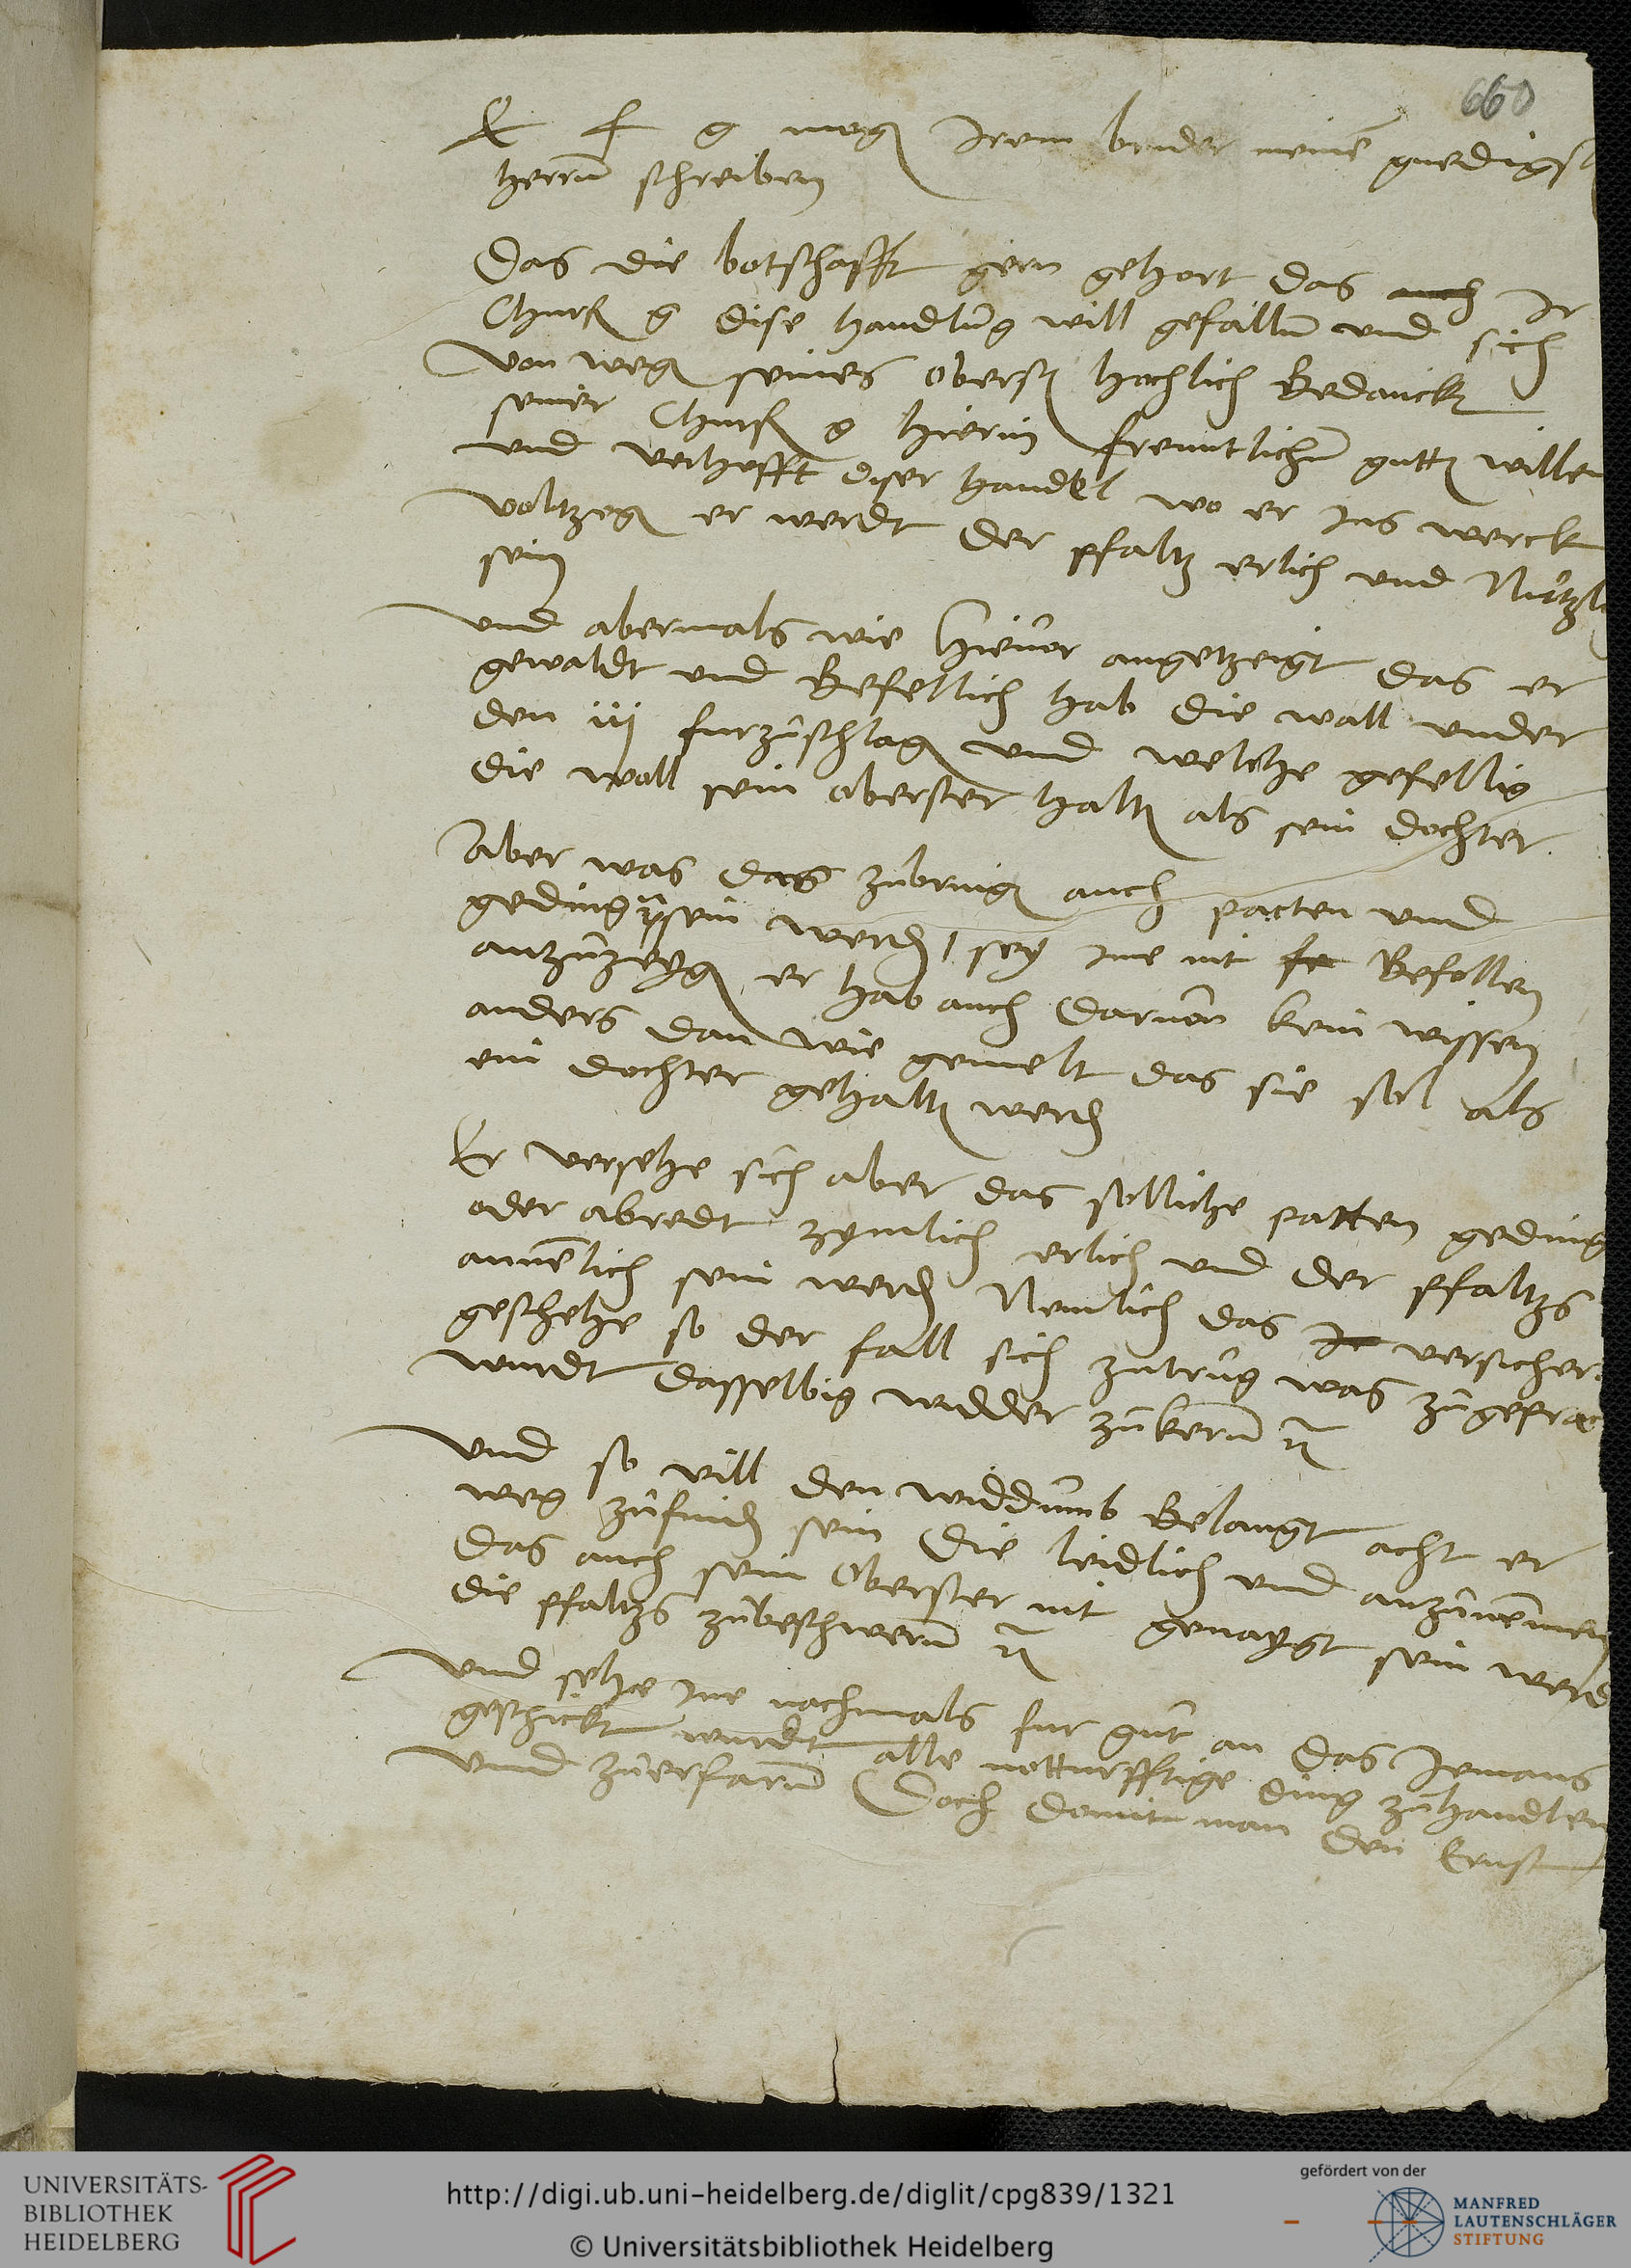 660
E f g mog Irem bruder meine gnedigst
herrn schreiben
Das die botschafft gern gehort das auch Ir
Churf g dise handlung will gefallen und sich
von weg seines obersten hochlich Bedanckt
seiner Churf g hierin freuntlichen gutten willen
und verhofft diser handel wo er ins werck
voltzog er werdt der pfaltz erlich und Nutzl
sein
und abermals wie hievor angetzeigt das er
gewaldt und Befellich hab die wall under
den iij furzuschlag und welche gefellig
die woll sein oberster halten als sein dochter
Aber was das zubringen auch pacten und
geding sein werden sey ime nit Befollen
anzuzeyg er hab auch darvon kein wissen
anders dan wie gemelt das sie sol als
ein dochter gehalten werden
Er versehe sich aber das solliche patten geding
oder abredt zymlich erlich und der pfaltzs
annemlich sein werden Nemlich das Ir versicher
geschehe so der fall sich zutrug was zugepra
wurdt dasselbig widder zukern
und so vill den widdumb Belangt acht er
weg zufinden sein die leidlich und anzunemen
das auch sein Oberster nit genaygt sein werd
die pfaltzs zubeschwern
und sehe ine nachmals fur gut an das Jemans
geschickt wurdt alle notturfftige ding zuhandlen
und zuerfarn Doch domit man den Ernst
UNIVERSITÄTS-
BIBLIOTHEK
HEIDELBERG
http://digi.ub.uni-heidelberg.de/diglit/cpg839/1321
© Universitätsbibliothek Heidelberg
gefördert von der
MANFRED
LAUTENSCHLÄGER
STIFTUNG